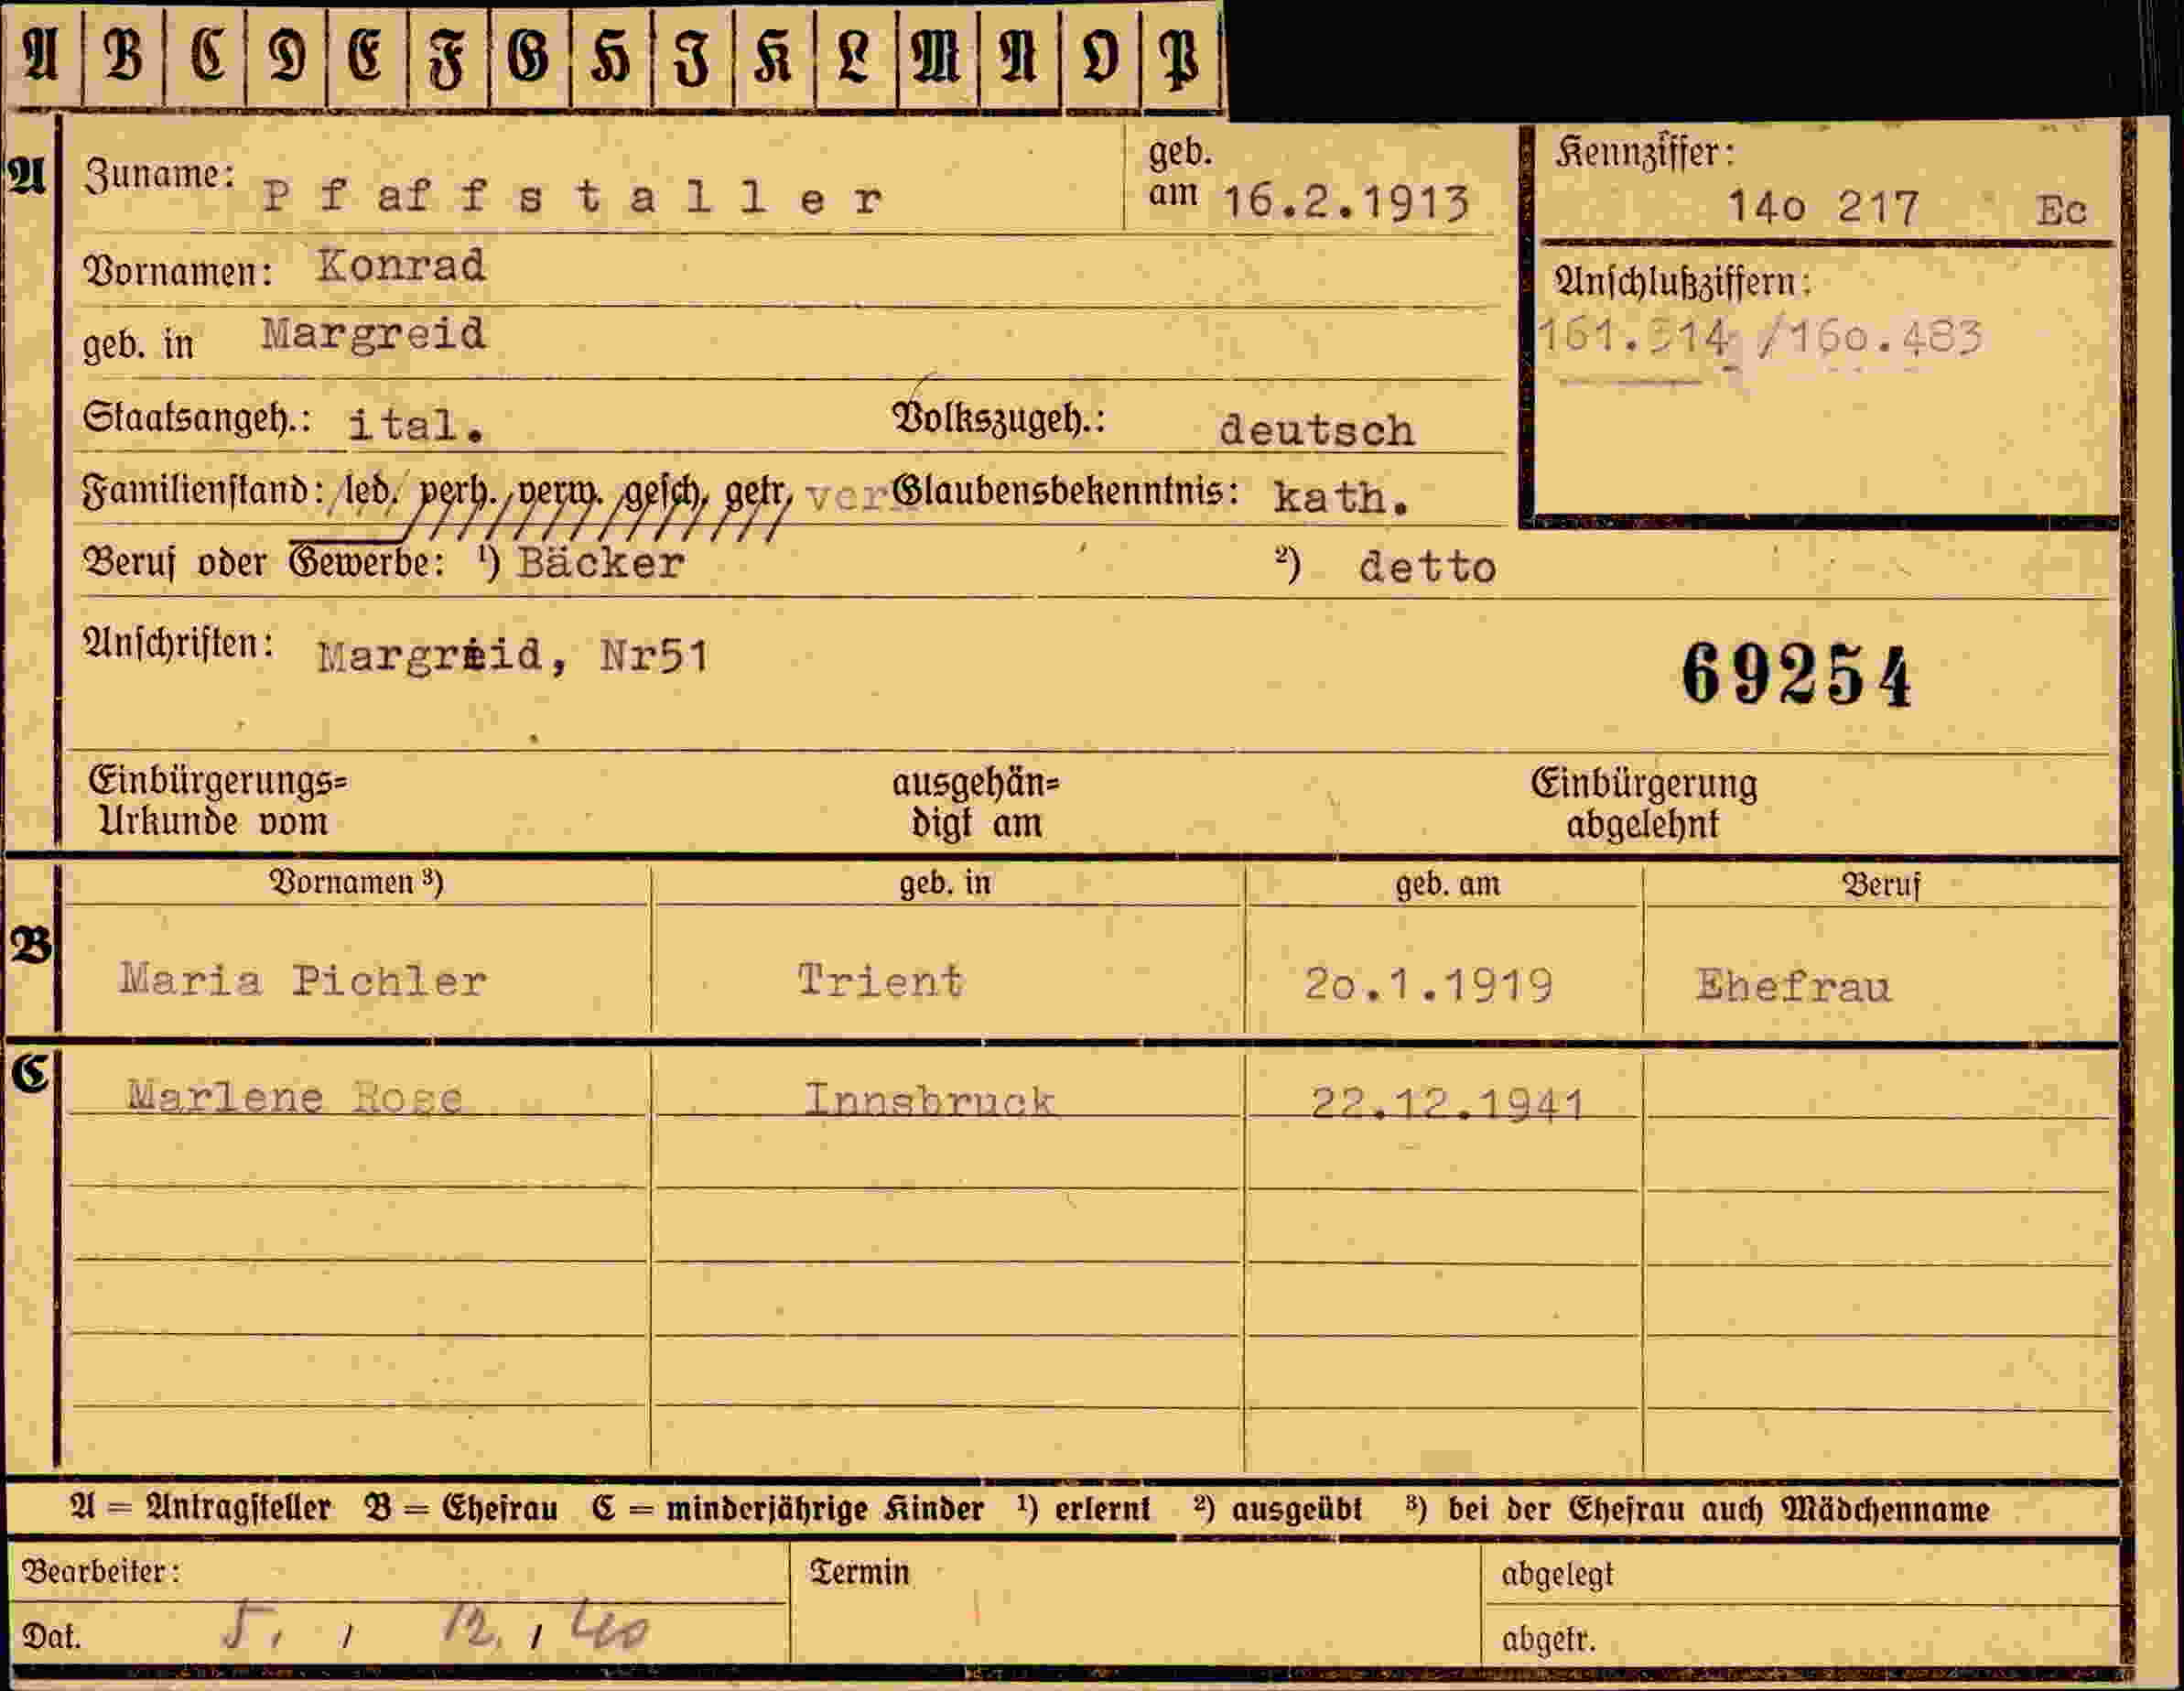 A B C D E F G H I K L M N O P
A Zuname: P f a f f s t a l l e r geb. am 16.2.1913
Kennziffer: 14o 217 Ec
Vornamen: Konrad
Anschlußziffern:
geb. in Margreid
/16o.483
Staatsangeh.: ital. Volkszugeh.: deutsch
Familienstand: led. verh. verw. gesch. getr. ver Glaubensbekenntnis: kath.
Beruf oder Gewerbe: ¹) Bäcker ²) detto
Anschriften: Margreid, Nr51
69254
Einbürgerungs=
Urkunde vom
ausgehän=
digt am
Einbürgerung
abgelehnt
Vornamen ³) geb. in geb. am Beruf
B Maria Pichler Trient 2o.1.1919 Ehefrau
C Marlene Rose Innsbruck 22.12.1941
A = Antragsteller B = Ehefrau C = minderjährige Kinder ¹) erlernt ²) ausgeübt ³) bei der Ehefrau auch Mädchenname
Bearbeiter: Termin abgelegt
Dat. 5. / 12. / 40 abgetr.